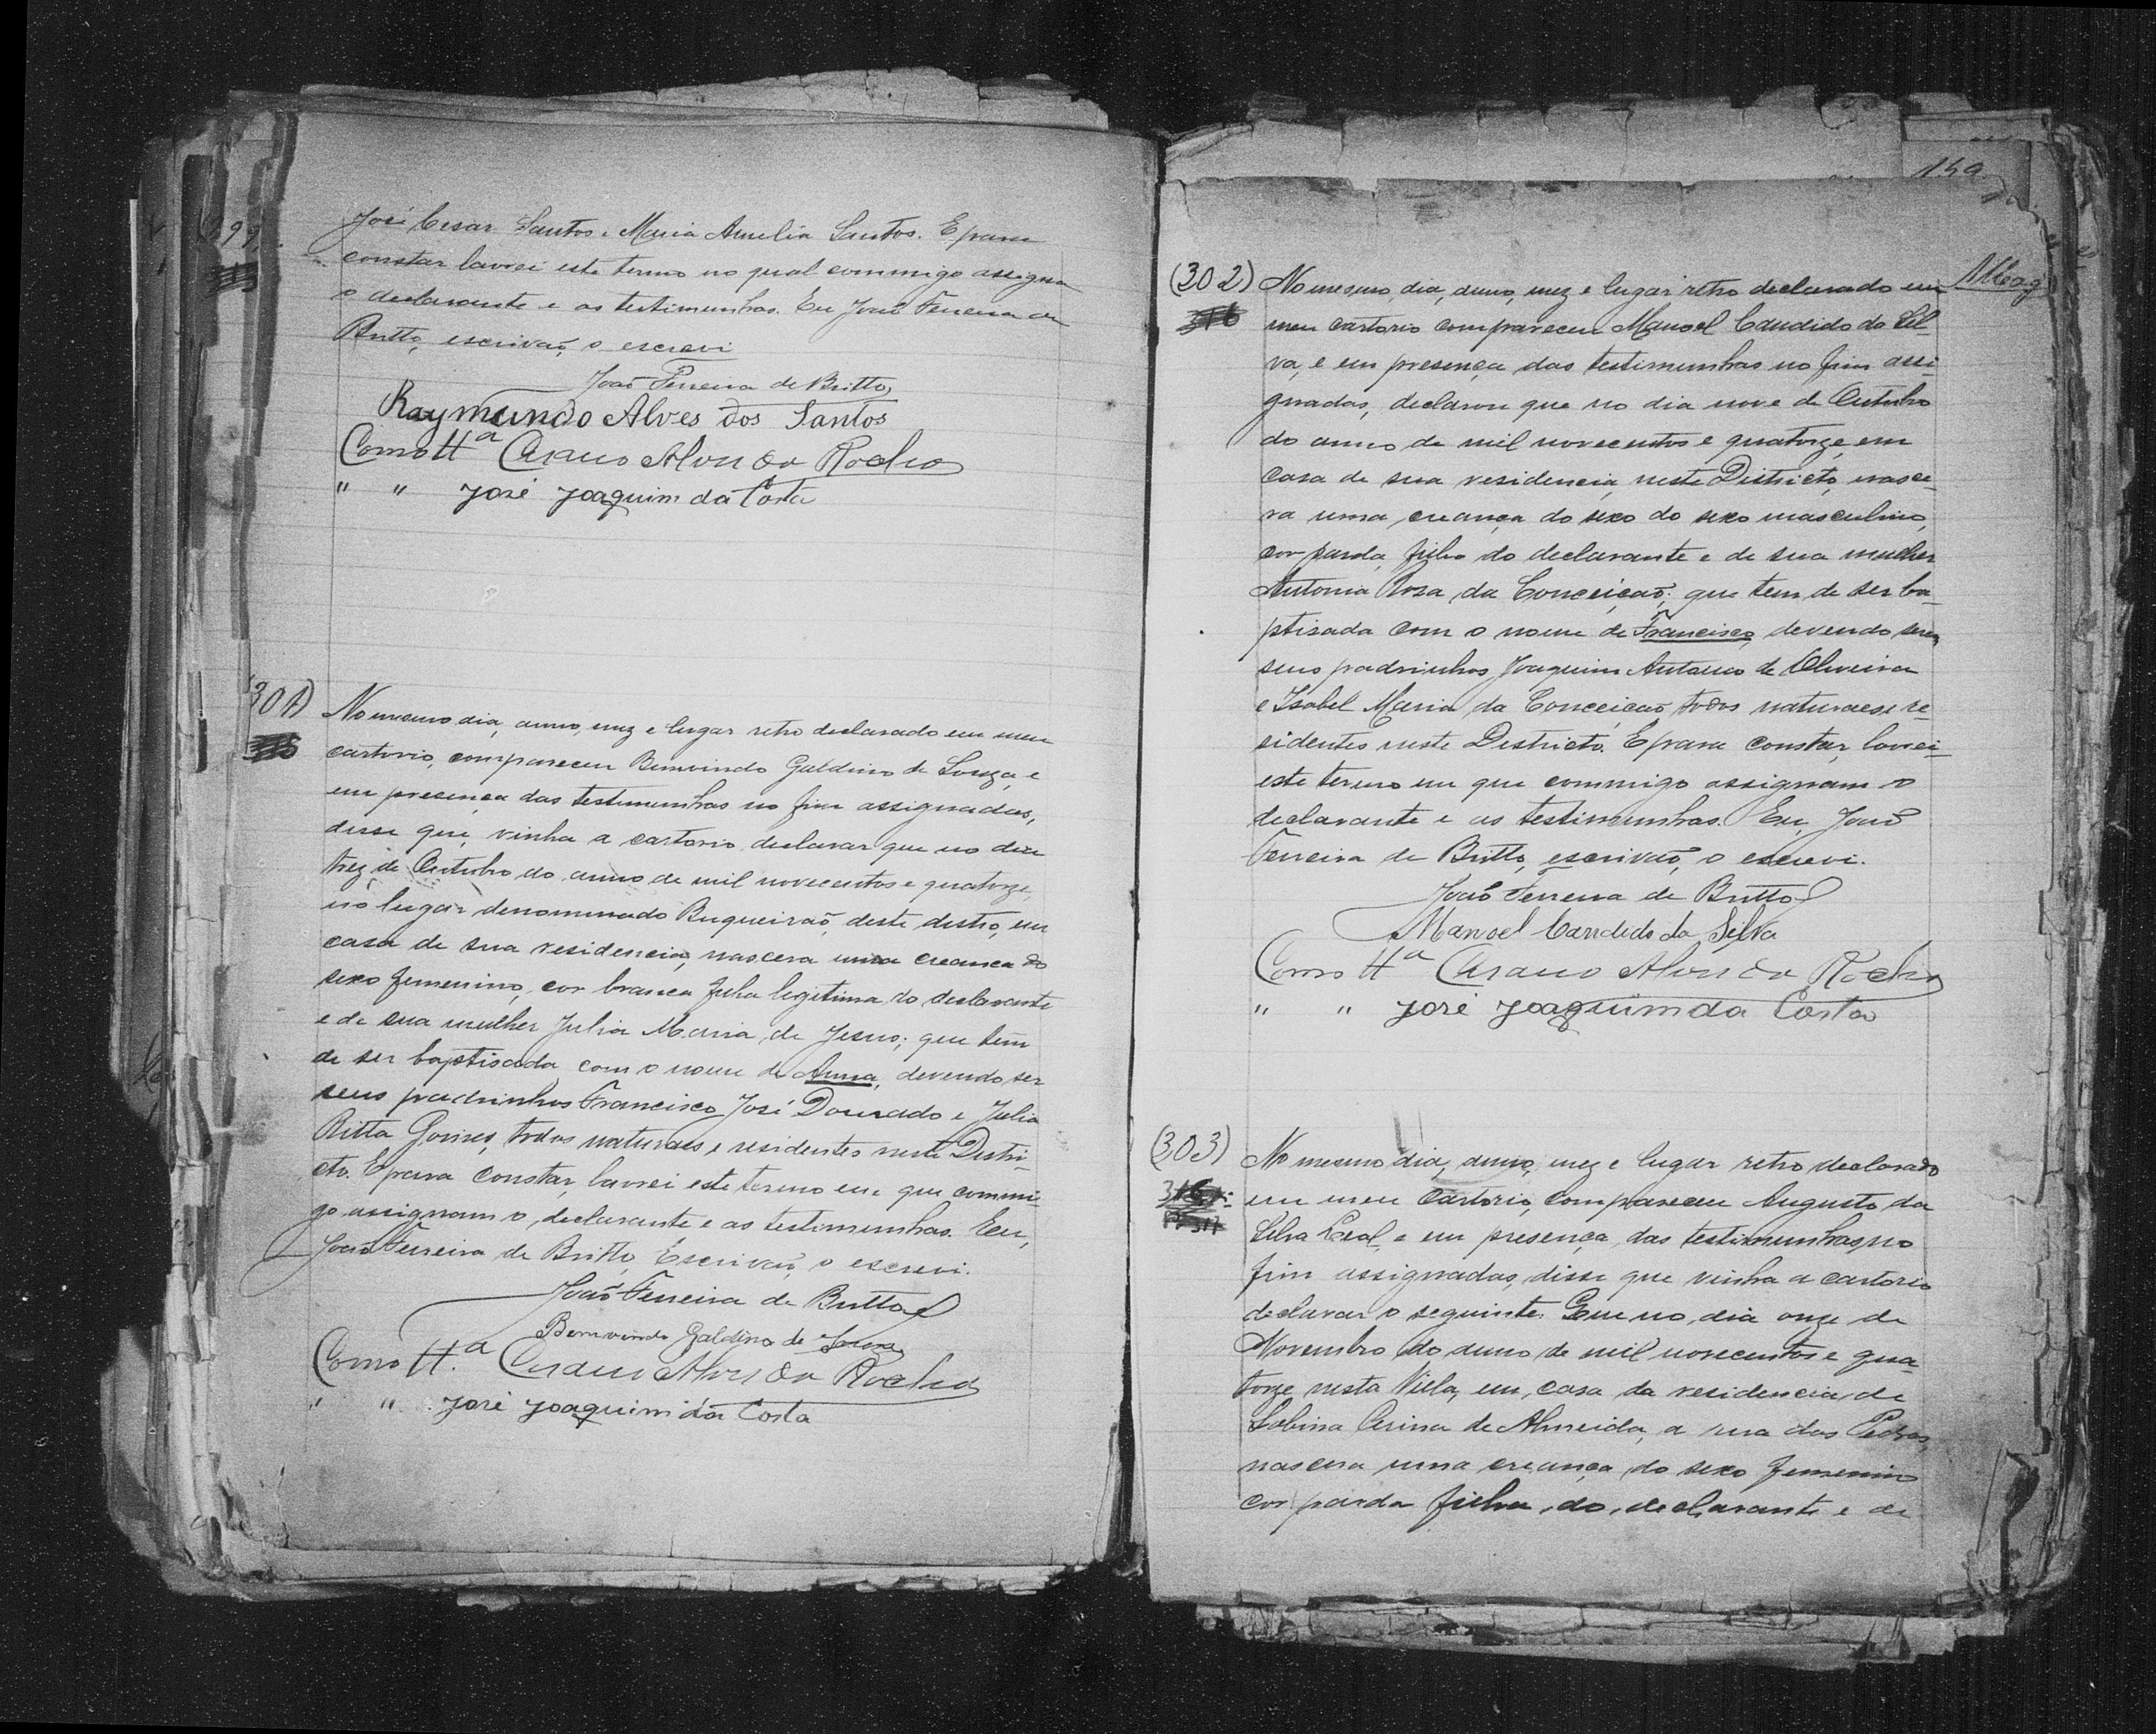 José Cesar Santos e Maria Amelia Santos. E para
constar lavrei este termo no qual commigo assigna
o declarante e as testimunhas. Eu João Ferreira de
Britto, escrivão, o escrevi
João Ferreira de Britto
Raymundo Alves dos Santos
Como ttª Alves da Rocha
" " José Joaquim da Costa
301)
No mesmo dia, anno, mez e lugar retro declarado em meu
cartorio, compareceu Bemvindo Galdino de Souza, e
em presença das testimunhas no fim assignadas,
disse que, vinha a cartorio declarar que no dia
trez de Outubro do anno de mil novecentos e quatorze,
no lugar denominado Buqueirão, deste distro, em
casa de sua residencia, nascera uma creanca do
sexo femenino, cor branca filha legitima do declarante
e de sua mulher Julia Maria de Jesus; que tem
de ser baptisada com o nome de Anna, devendo ser
seus padrinhos Francisco José Dourado e Julia
Ritta Gomes, todos naturaes e residentes neste Distri-
cto. E para constar, lavrei este termo em que commi-
go assignam o declarante e as testimunhas. Eu,
João Ferreira de Britto, Escrivão, o escrevi.
João Ferreira de Britto
Bemvindo Galdino de Souza
Como ttª Alves da Rocha
" " José Joaquim da Costa
(302)
316
No mesmo dia, anno, mez e lugar retro declarado em
meu cartorio compareceu Manoel Candido da Sil-
va, e em presença das testimunhas no fim assi-
gnadas, declarou que no dia nove de Outubro
do anno de mil novecentos e quatorze, em
casa de sua residencia, neste Districto, nasce-
ra uma creança do sexo do sexo masculino,
cor parda, filho do declarante e de sua mulher
Antonia Rosa da Conceição; que tem de ser ba-
ptisada com o nome de Francisco, devendo serem
seus padrinhos Joaquim Antonio de Oliveira
e Isabel Maria da Conceição todos naturaes e re-
sidentes neste Districto. E para constar, lavrei
este termo em que commigo assignam o
declarante e as testimunhas. Eu, João
Ferreira de Britto, escrivão, o escrevi.
João Ferreira de Britto
Manoel Candido da Silva
Como ttª Alves da Rocha
" " José Joaquim da Costa
(303)
317
No mesmo dia, anno, mez e lugar retro declarado
em meu cartorio, compareceu Augusto da
Silva Leal, e em presença das testimunhas no
fim assignadas, disse que vinha a cartorio
declarar o seguinte: Que no dia onze de
Novembro do anno de mil novecentos e qua-
torze, nesta Villa, em casa da residencia de
de Almeida, a rua das Pedras,
nascera uma creança do sexo femenino
cor parda filha do declarante e de